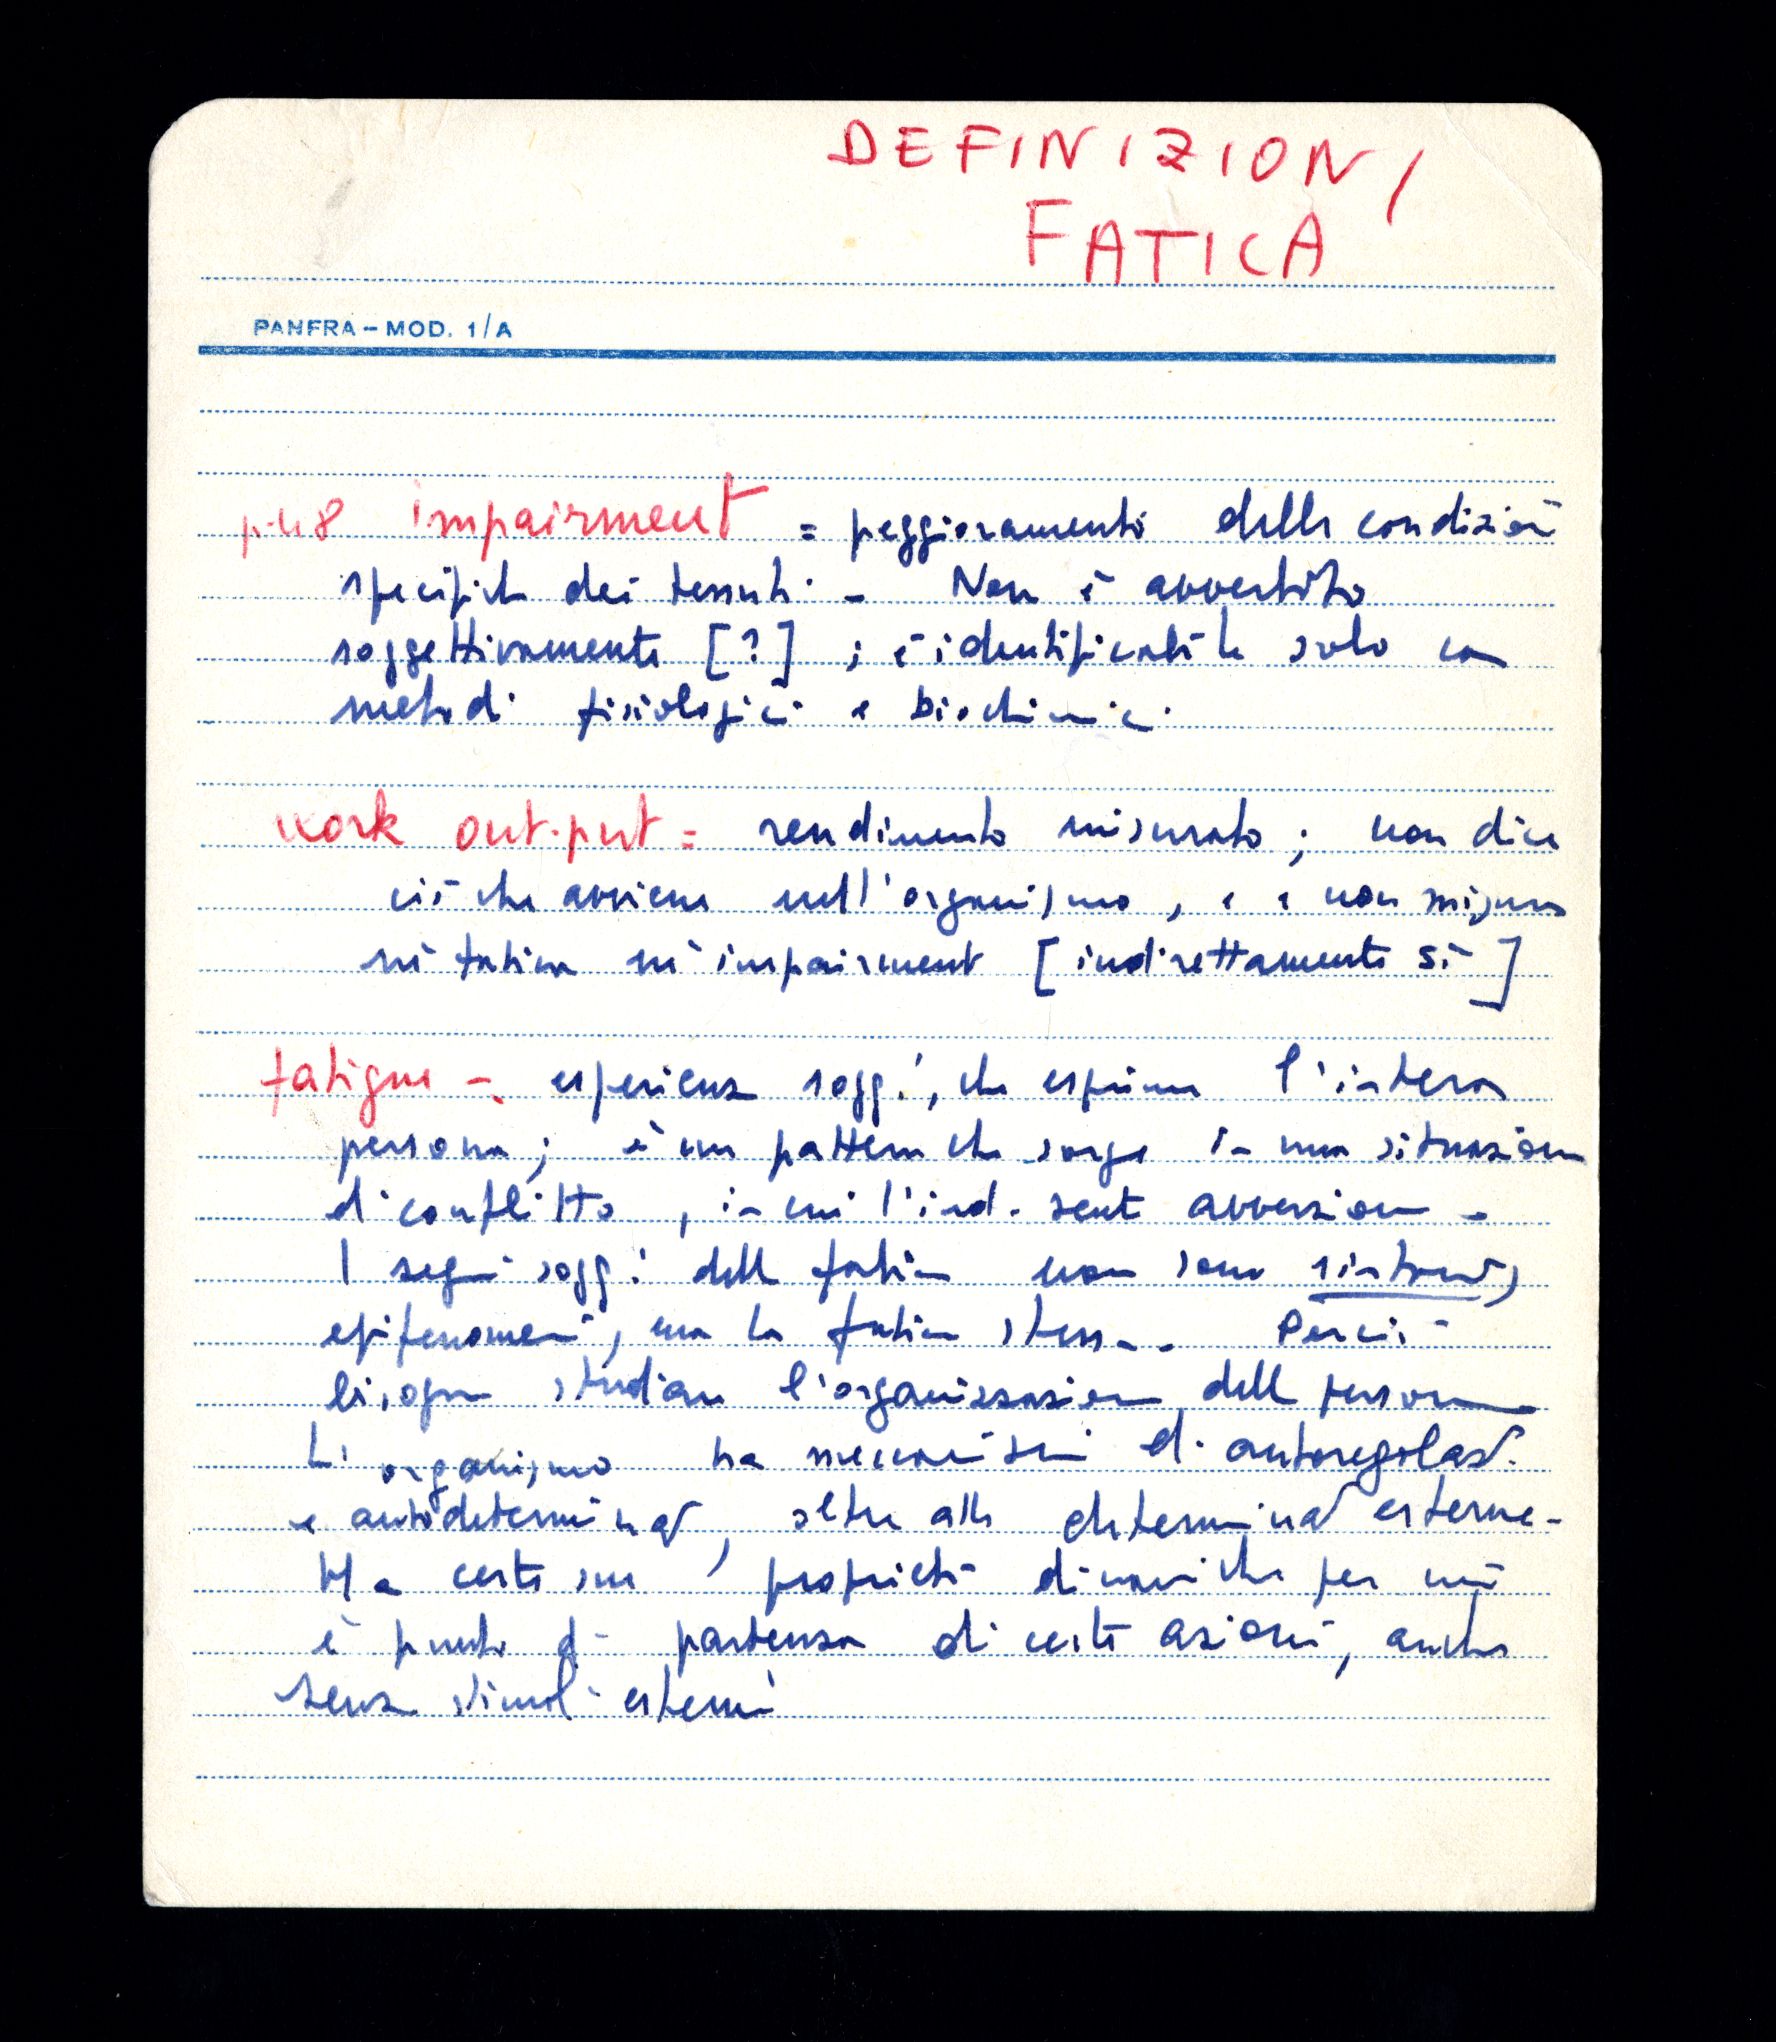 DEFINIZIONI
FATICA
PANFRA – MOD. 1/A
impairment = peggioramento delle condizioni
specifiche dei tessuti. – Non è avvertito
soggettivamente [?] ; è identificabile solo con
metodi fisiologici e biochimici.
work out-put = rendimento misurato ; non dice
ciò che avviene nell'organismo , e non misura
né fatica né impairment [indirettamente sì]
fatigue – esperienza sogg., che esprime l'intera
persona ; è un pattern che sorge in una situazione
di conflitto , in cui l'ind. sente avversione –
I segni sogg. della fatica non sono sintomi,
epifenomeni, ma la fatica stessa. Perciò
bisogna studiare l'organizzazione della persona
L'organismo ha meccanismi di autoregolaz.
e autodeterminaz, oltre alle determinaz esterne –
Ha certe sue proprietà dinamiche per cui
è punto di partenza di certe azioni, anche
senza stimoli esterni